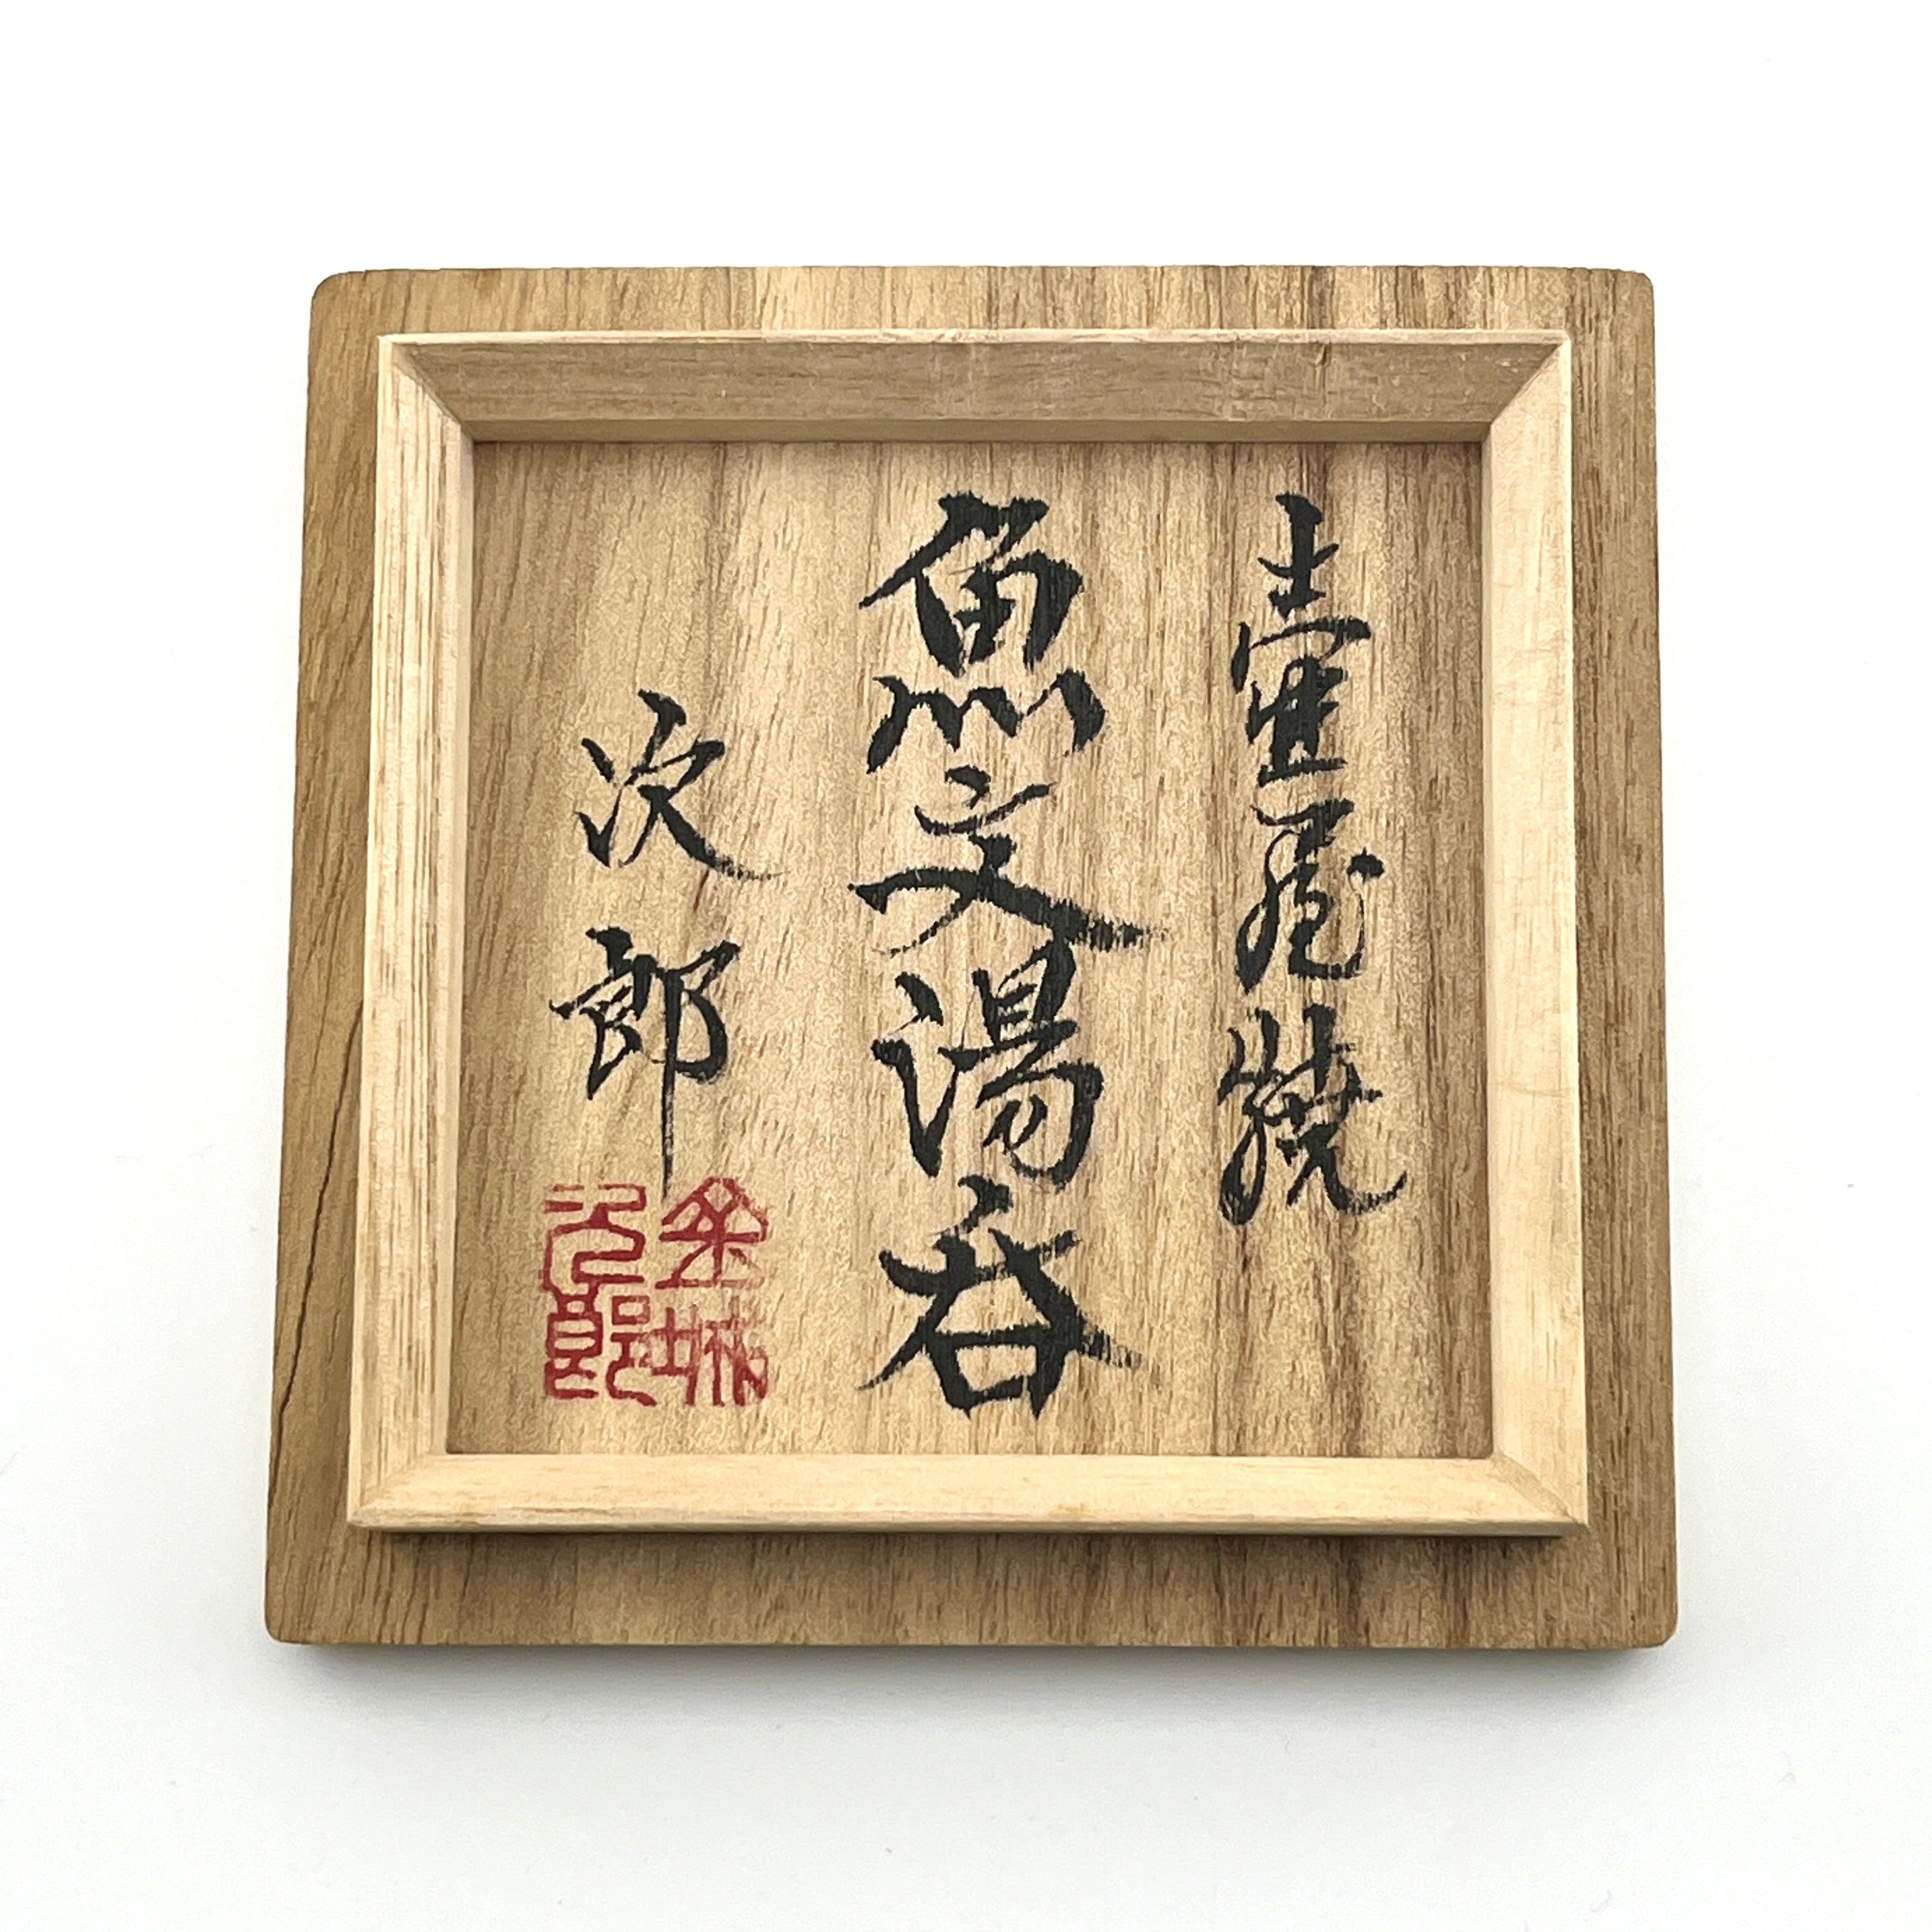 壷屋焼
魚文湯呑
次郎
金城次郎